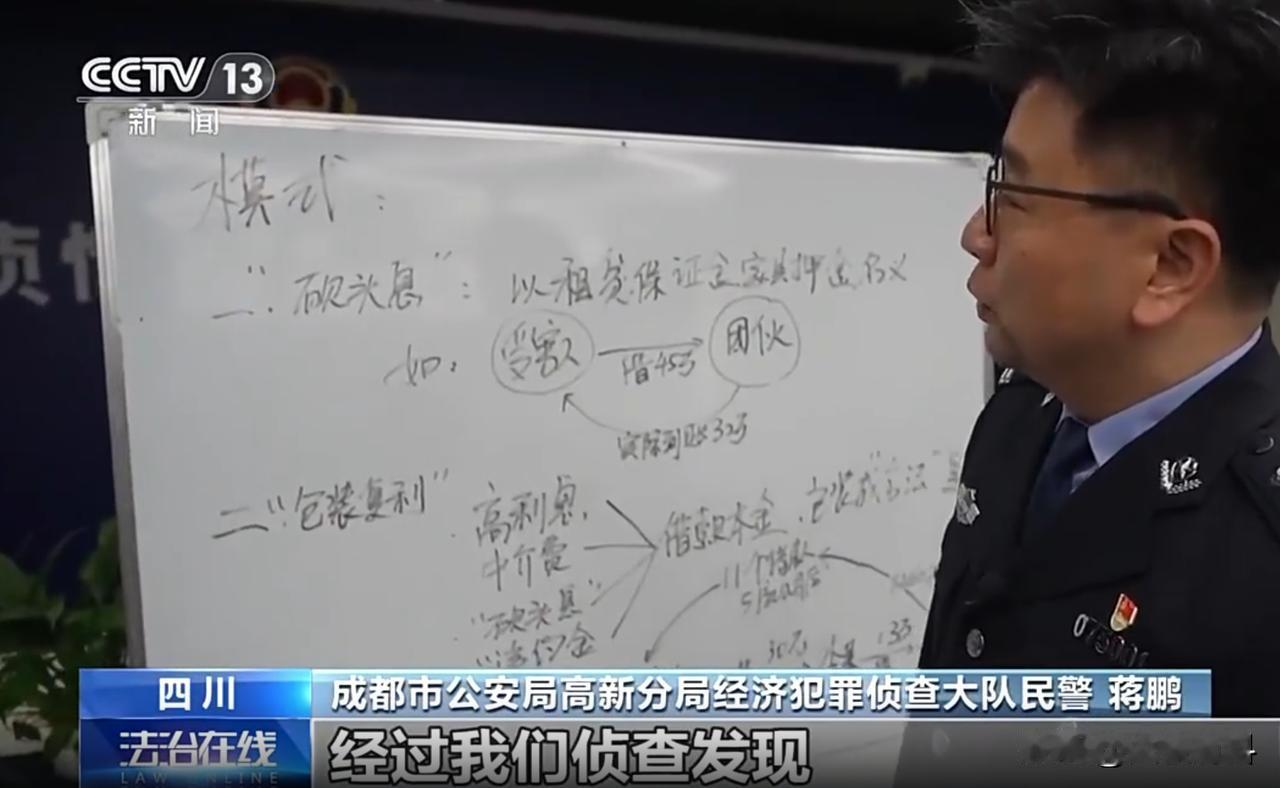 CCTV 13
新闻
模式：
一."砍头息"：以租赁保证金家具押金名义
如：
受害人
借45万
团伙
实际到账32万
二."包装复利"
高利息
中介费
"砍头息"
违约金
借款本金
包装成合法
11个
四川
成都市公安局高新分局经济犯罪侦查大队民警 蒋鹏
法治在线
LAW ONLINE
经过我们侦查发现